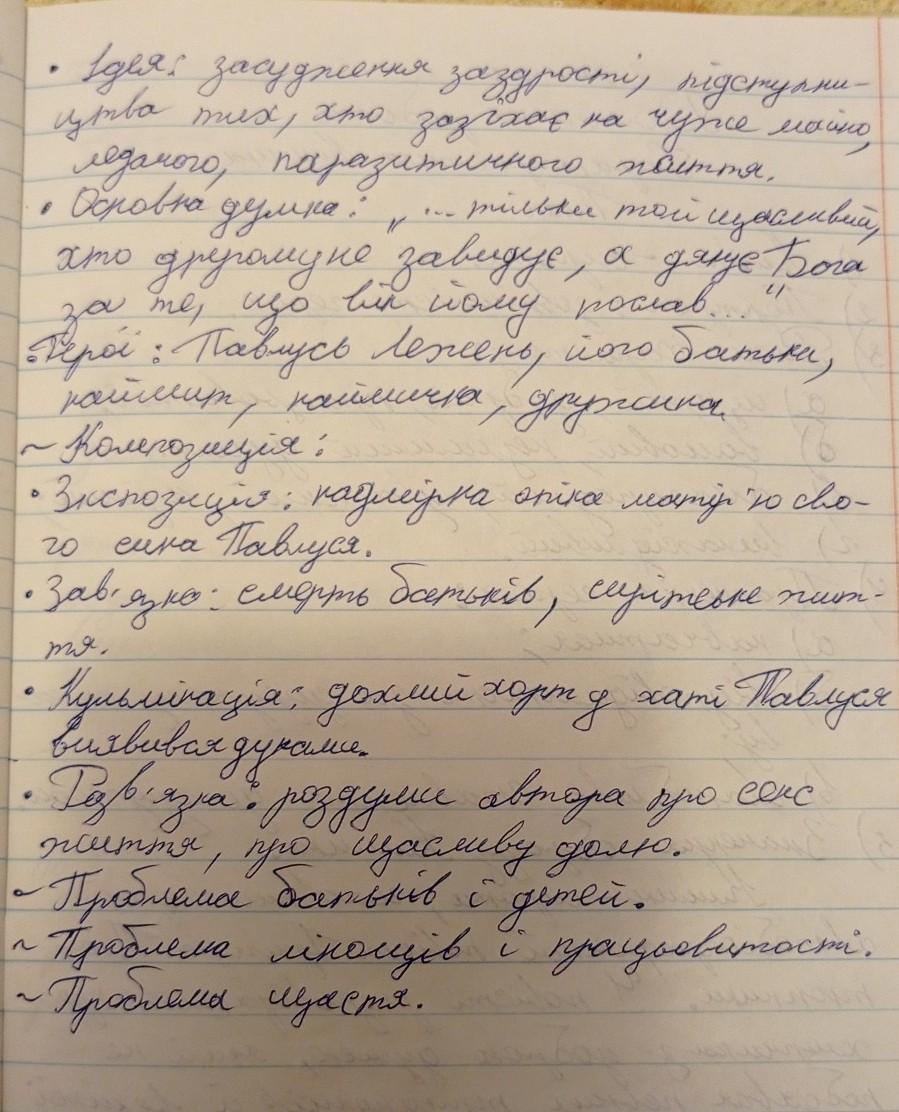 • Ідея: засудження заздрості, підступни-
цтва тих, хто зазіхає на чуже майно,
ледачого, паразитичного життя.
• Основна думка: „...тільки той щасливий,
хто другому не завидує, а дякує Бога
за те, що він йому послав..."
• Герої: Павлусь Лежень, його батьки,
наймит, наймичка, дружина.
~ Композиція:
• Экспозиція: надмірна опіка матір'ю сво-
го сина Павлуся.
• Зав'язка: смерть батьків, життя-
тя.
• Кульмінація: дохлий хорт у хаті Павлуся
виявився дуками.
• Розв'язка: роздуми автора про сенс
життя, про щасливу долю.
~ Проблема батьків і дітей.
~ Проблема лінощів і працьовитості.
~ Проблема щастя.